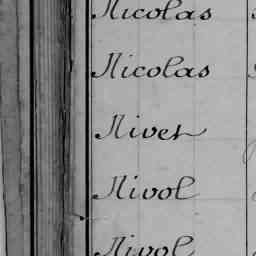 Nicolas
Nicolas
Nivet
Nivol
Nivol